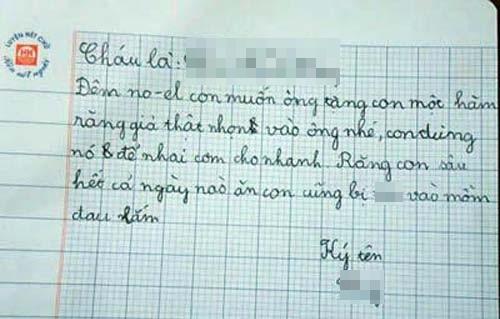 LUYỆN NÉT CHỮ
Rèn nết người
Cháu là:
Đêm no-el con muốn ông tặng con một hàm
răng giả thật nhọn vào ông nhé, con dùng
nó để nhai cơm cho nhanh. Răng con sâu
hết cả ngày naò ăn con cũng bị vaò mồm
đau lắm
Ký tên